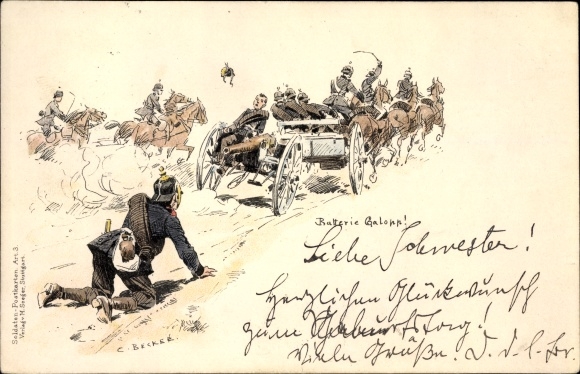 Batterie Galopp!
Liebe Schwester!
Herzlichen Glückwunsch
zum Geburtstag!
Viele Grüße. D. d. l. Br.
C. BECKER.
Soldaten-Postkarten. Art. 3.
Verlag v. M. Seeger, Stuttgart.